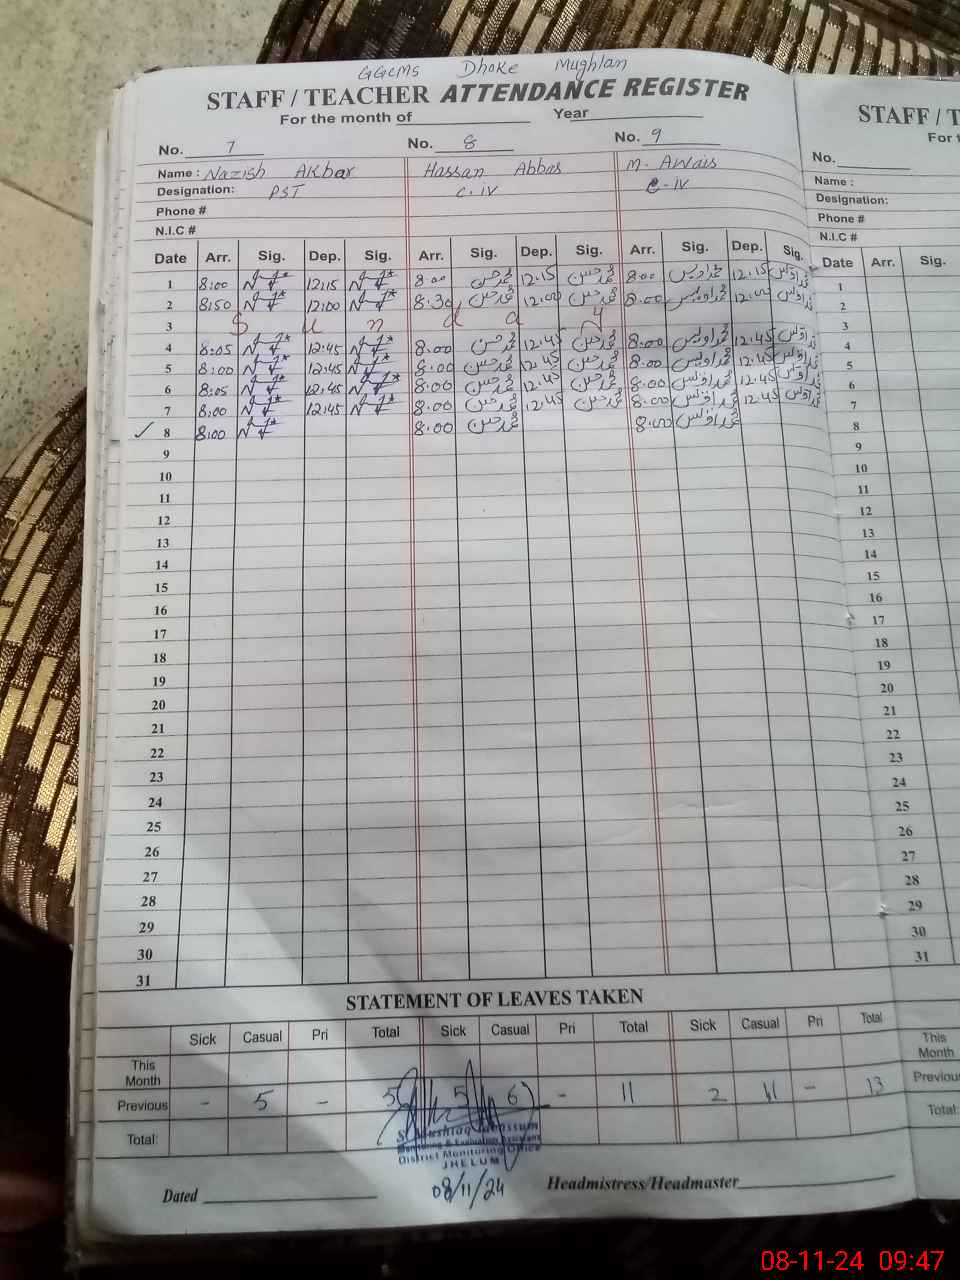 GGCMS Dhoke Mughlan
STAFF / TEACHER ATTENDANCE REGISTER
For the month of Year
No. 7 No. 8 No. 9
Name : Nazish Akbar Hassan Abbas M. Awais
Designation: PST C-iv C-iv
Phone #
N.I.C #
Date Arr. Sig. Dep. Sig. Arr. Sig. Dep. Sig. Arr. Sig. Dep. Sig.
1 8:00 12:15 8.00 محمد حسن 12.15 محمد حسن 8.00 محمد اویس 12.15 محمد اویس
2 8:50 12:00 8.30 محمد حسن 12.00 محمد حسن 8.00 محمد اویس 12.00 محمد اویس
3 S u n d a y
4 8:05 12:45 8.00 محمد حسن 12.45 محمد حسن 8.00 محمد اویس 12.45 محمد اویس
5 8:00 12:45 8.00 محمد حسن 12.45 محمد حسن 8.00 محمد اویس 12.45 محمد اویس
6 8:05 12:45 8.00 محمد حسن 12.45 محمد حسن 8.00 محمد اویس 12.45 محمد اویس
7 8:00 12:45 8.00 محمد حسن 12.45 محمد حسن 8.00 محمد اویس 12.45 محمد اویس
8 8:00 8.00 محمد حسن 8.00 محمد اویس
9
10
11
12
13
14
15
16
17
18
19
20
21
22
23
24
25
26
27
28
29
30
31
STATEMENT OF LEAVES TAKEN
Sick Casual Pri Total Sick Casual Pri Total Sick Casual Pri Total
This Month
Previous - 5 - 5 5 6 - 11 2 11 - 13
Total:
Monitoring & Evaluation Assistant
District Monitoring Office
JHELUM
08/11/24
Dated Headmistress/Headmaster
STAFF / T
For t
No.
Name :
Designation:
Phone #
N.I.C #
Date Arr. Sig.
1
2
3
4
5
6
7
8
9
10
11
12
13
14
15
16
17
18
19
20
21
22
23
24
25
26
27
28
29
30
31
This Month
Previous
Total:
08-11-24 09:47